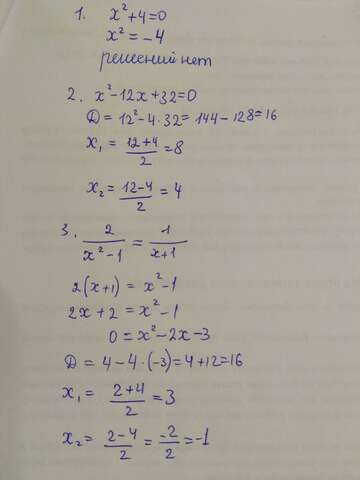 1. x²+4=0
x²=-4
решений нет
2. x²-12x+32=0
D = 12²-4·32= 144-128=16
x₁ = (12+4)/2 =8
x₂ = (12-4)/2 = 4
3. 2/(x²-1) = 1/(x+1)
2(x+1) = x²-1
2x+2 = x²-1
0 = x²-2x-3
D = 4-4·(-3)=4+12=16
x₁ = (2+4)/2 = 3
x₂ = (2-4)/2 = -2/2 = -1